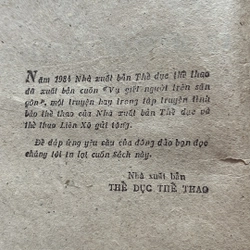 Năm 1984 Nhà xuất bản Thể dục thể thao
đã xuất bản cuốn «Vụ giết người trên sân
gôn», một truyện hay trong tập truyện tình
báo thể thao của Nhà xuất bản Thể dục và
thể thao Liên Xô gửi tặng.
Để đáp ứng yêu cầu của đông đảo bạn đọc
chúng tôi in lại cuốn sách này.
Nhà xuất bản
THỂ DỤC THỂ THAO